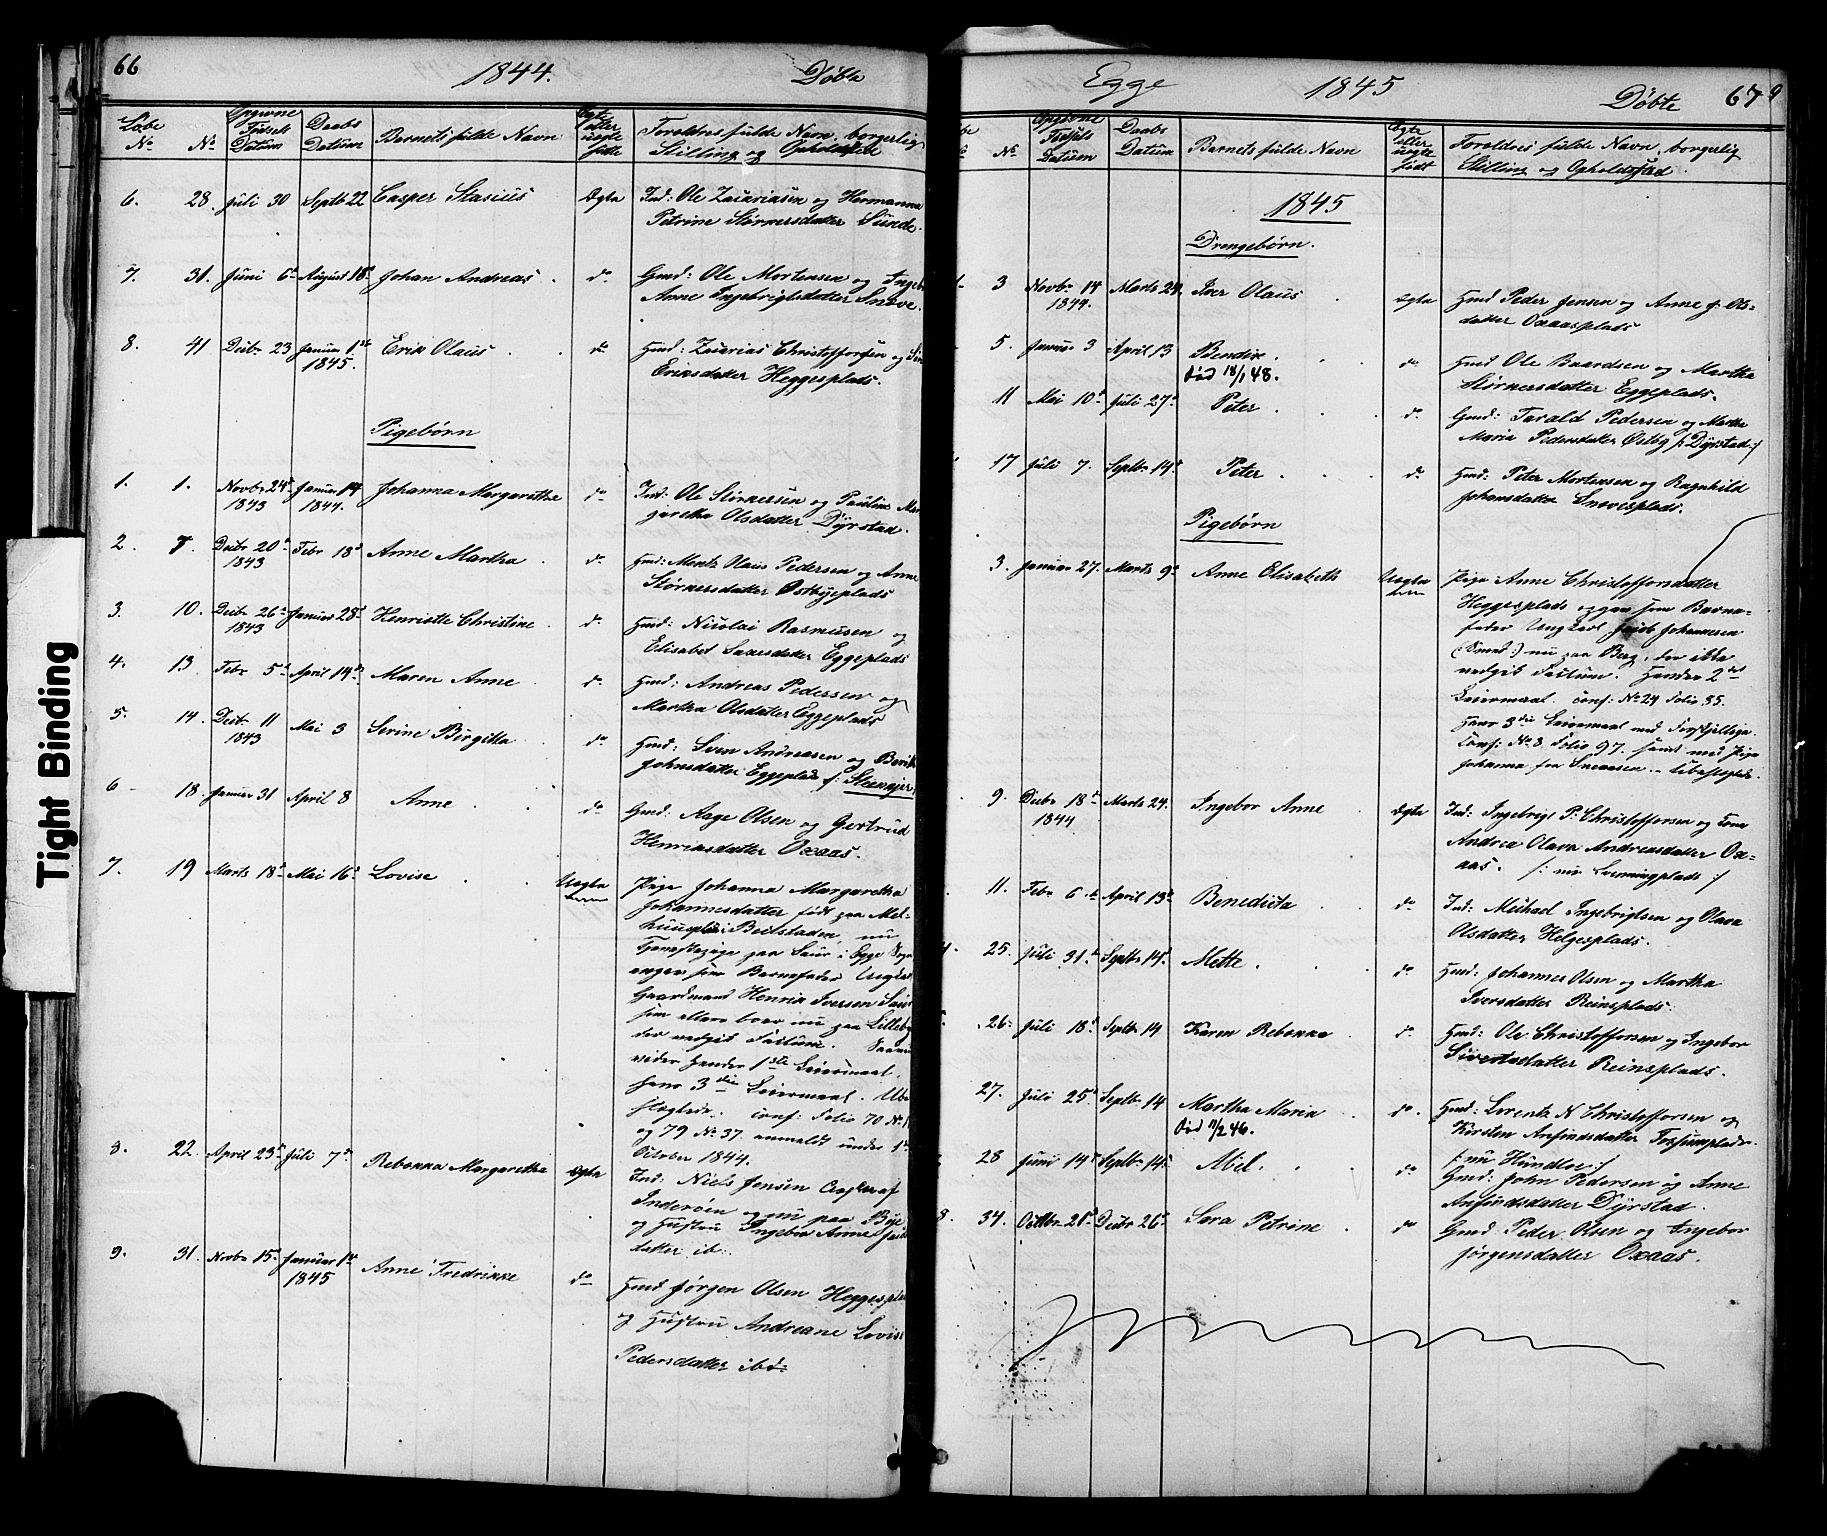 66 1844. Døbte
Løbe No
No
Opgivne Fødsels Datum
Daabs Datum
Barnets fulde Navn
Ægte eller uægte født
Forældres fulde Navn, borgerlig Stilling og Opholdssted
6. 28. Juli 30 Septb 22 Casper Stasius Ægte Ind: Ole Zacariasen og Hermanna
Petrine Størkersdatter Sunde.
7. 31. Juni 6te August 18de Johan Andreas do Gmd: Ole Mortensen og Ingeb
Anne Ingebrigtsdatter Snave.
8. 41 Decbr 23 Januar 1ste 1845. Erik Olaus do Hmd: Zacarias Christoffersen og
Eriksdatter Heggesplads.
Pigebørn
1. 1. Novbr 24de 1843 Januar 14 1844. Johanna Margarethe do Ind: Ole Størkersen og Pauline Mar
gretha Olsdatter Dyrstad.
2. 7. Decbr 20de 1843 Febr 18de Anne Martha do Hmd: Mentz Olaus Pedersen og Anne
Størkersdatter Østbyeplads
3. 10. Decbr 26de 1843 Januar 28de Henriette Christine do Hmd: Nicolai Rasmusen og
Elisabet Larsdatter Eggeplads
4. 13. Febr 5te April 14de Maren Anne do Hmd: Andreas Pedersen og
Martha Olsdatter Eggeplads
5. 14. Decbr 11 1843 Mai 3 Serine Birgitta do Hmd: Sven Andreasen og Berit
Johnsdatter Eggeplads /: Steenkjer
6 18. Januar 31 April 8 Anne do Gmd: Aage Olsen og Gertrud
Henriksdatter Oxaas.
7. 19 Marts 18de Mai 16de Lovise Uægte Pige Johanna Margaretha
Johannesdatter født paa Mel-
huusplds i Beitstaden, nu
Tjenestepige paa Saur i Egge Sogn
angav som Barnefader Ungkarl
Gaardmand Henrik Iversen Saur
som ellers boer nu paa Lilleby
der vedgik Factum.
videre Hendes 1ste Leiermaal,
hans 3die Leiermaal. Ube
slægtede. conf: Folio 70 No 1
og 79 No 37. anmeldt under 1ste
October 1844.
8. 22. April 23de Juli 7de Rebekka Margaretha Ægte Ind: Niels Jensen af
Inderøen og nu paa Bye
og Hustru Ingebor Anne
datter ib:
9. 31. Novbr 15de Januar 1ste 1845 Anne Fredrikke do Hmd Jørgen Olsen Heggesplads
og Hustru Andreane Lovise
Pedersdatter ibd:
Egge 1845 Døbte 67
No
Opgivne Fødsels Datum
Daabs Datum
Barnets fulde Navn
Ægte eller uægte født
Forældres fulde Navn, borgerlig Stilling og Opholdssted.
1845
Drengebørn.
3 Novbr 14 1844. Marts 24. Iver Olaus Ægte Hmd Peder Jensen og Anne J. Ols-
datter Oxaasplads
5. Januar 3 April 13 Bendix do Hmd Ole Baardsen og Martha
Død 18/1 48. Størkersdatter Eggeplads.
11 Mai 10de Juli 27de Peter do Gmd: Tarald Pedersen og Martha
Maria Pedersdatter Østby /: Dyrstad :/
17 Juli 7. Septbr 14de Peter do Hmd: Peter Mortensen og Ragnhild
Johansdatter Snavesplads.
Pigebørn
3. Januar 27. Marts 9de Anne Elisabeth Uægte Pige Anne Christoffersdatter
Heggesplads opgav som Barne-
fader Ungkarl Jacob Johannesen
(: Smed :) nu paa Berg, der ikke
vedgik Factum. Hendes 2det
Leiermaal conf: No 24 Folio 85.
Hans 3die Leiermaal med Forskjellige
Conf: No 8 Folio 97. samt med Pige
Johanna fra Snaasen. - Ubeslægtede.
9. Decbr 18de 1844 Marts 24. Ingebor Anne Ægte Ind: Ingebrigt P. Christoffersen og
Andrea Olava Andreasdatter Ox-
aas. /: nu Svenningplads :/
11. Febr 6te April 13de Benedicta do Ind: Michael Ingebrigtsen og Olava
Olsdatter Helgesplads.
25. Juli 31te Septbr 14de Mette do Hmd: Johannes Olsen og Martha
Iversdatter Reinsplads.
26. Juli 18de Septbr 14 Karen Rebekka do Hmd: Ole Christoffersen og Ingebor
Sivertsdatter Reinsplads.
27. Juli 25de Septbr 14 Martha Maria do. Hmd: Lorentz N Christoffersen og
Død 11/2 46. Kirsten Anfindsdatter Fossumplads
/: nu Hundloe :/
28 Juni 14de Septbr 14de Abel. do Gmd: John Pedersen og Anne
Anfindsdatter Dyrstad.
34. Octbr 20de Decbr 26de Sara Petrine do Gmd Peder Olsen og Ingebor
Jørgensdatter Oxaas.
Tight Binding